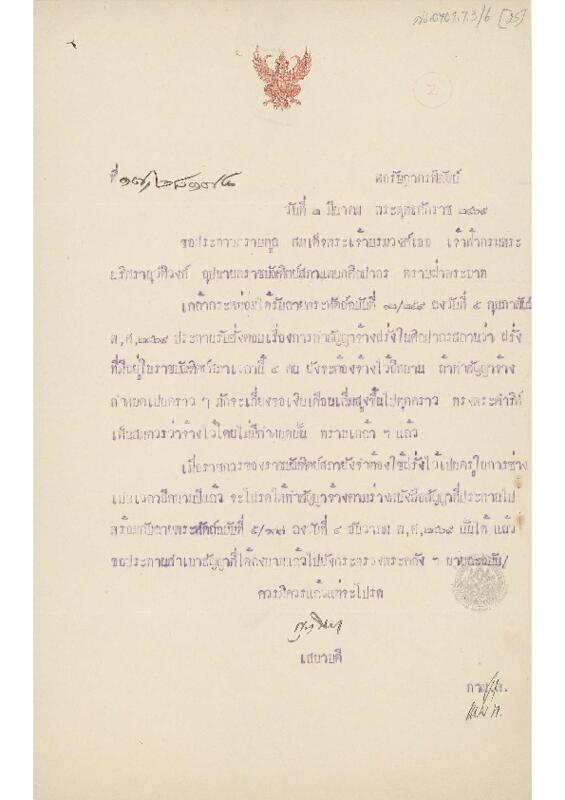 ศธ.0701.7.3/6 [25]
2
ที่ ๑๗/๒๘๑๗๔ หอรัษฎากรพิพัฒน์
วันที่ ๑ มีนาคม พระพุทธศักราช ๒๔๖๙
ขอประทานกราบทูล สมเด็จพระเจ้าบรมวงศ์เธอ เจ้าฟ้ากรมพระ
นริศรานุวัติวงศ์ อุปนายกราชบัณฑิตย์สภาแผนกศิลปากร ทราบฝ่าพระบาท
เกล้ากระหม่อมได้รับลายพระหัตถ์ฉบับที่ ๑๐/๒๕๙ ลงวันที่ ๕ กุมภาพันธ์
พ,ศ,๒๔๖๙ ประทานรับสั่งตอบเรื่องการทำสัญญาจ้างฝรั่งในศิลปากรสถานว่า ฝรั่ง
ที่มีอยู่ในราชบัณฑิตย์สภาเวลานี้ ๔ คน ยังจะต้องจ้างไว้อีกนาน ถ้าทำสัญญาจ้าง
กำหนดเปนคราว ๆ มักจะเกี่ยงขอเงินเดือนเพิ่มสูงขึ้นไปทุกคราว ทรงพระดำริห์
เห็นสมควรว่าจ้างไว้โดยไม่มีกำหนดนั้น ทราบเกล้า ฯ แล้ว
เมื่อราชการของราชบัณฑิตย์สภายังจำต้องใช้ฝรั่งไว้เปนครูในการช่าง
เปนเวลาอีกนานปีแล้ว จะโปรดให้ทำสัญญาจ้างตามร่างหนังสือสัญญาที่ประทานไป
พร้อมกับลายพระหัตถ์ฉบับที่ ๕/๑๓๘ ลงวันที่ ๔ ธันวาคม พ,ศ,๒๔๖๙ นั้นได้ แล้ว
ขอประทานสำเนาสัญญาที่ได้ลงนามแล้วไปยังกระทรวงพระคลัง ฯ บายละฉบับ/
ควรมิควรแล้วแต่จะโปรด
เสนาบดี